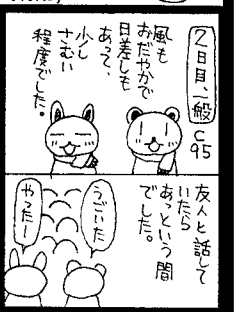 2日目、一般
C95
風も
おだやかで
日差しも
あって、
少し
さむい
程度でした。
友人と話して
いたら
あっという間
でした。
うごいた
やったー